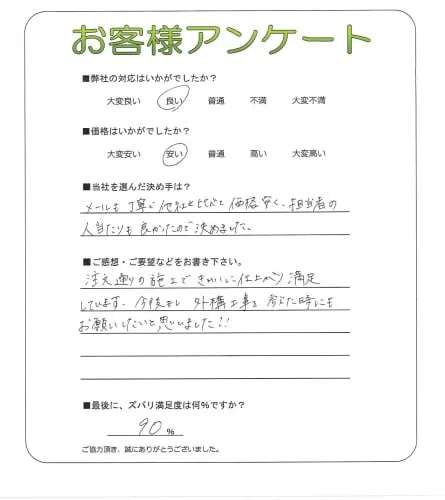 お客様アンケート
■弊社の対応はいかがでしたか？
大変良い 良い 普通 不満 大変不満
■価格はいかがでしたか？
大変安い 安い 普通 高い 大変高い
■当社を選んだ決め手は？
メールも丁寧で他社と比べて価格安く、担当者の
人当たりも良かったので決めました。
■ご感想・ご要望などをお書き下さい。
注文通りの施工できれいに仕上がり満足
しています。今後もし外構工事を考えた時にも
お願いしたいと思いました!!
■最後に、ズバリ満足度は何%ですか？
90 %
ご協力頂き、誠にありがとうございました。